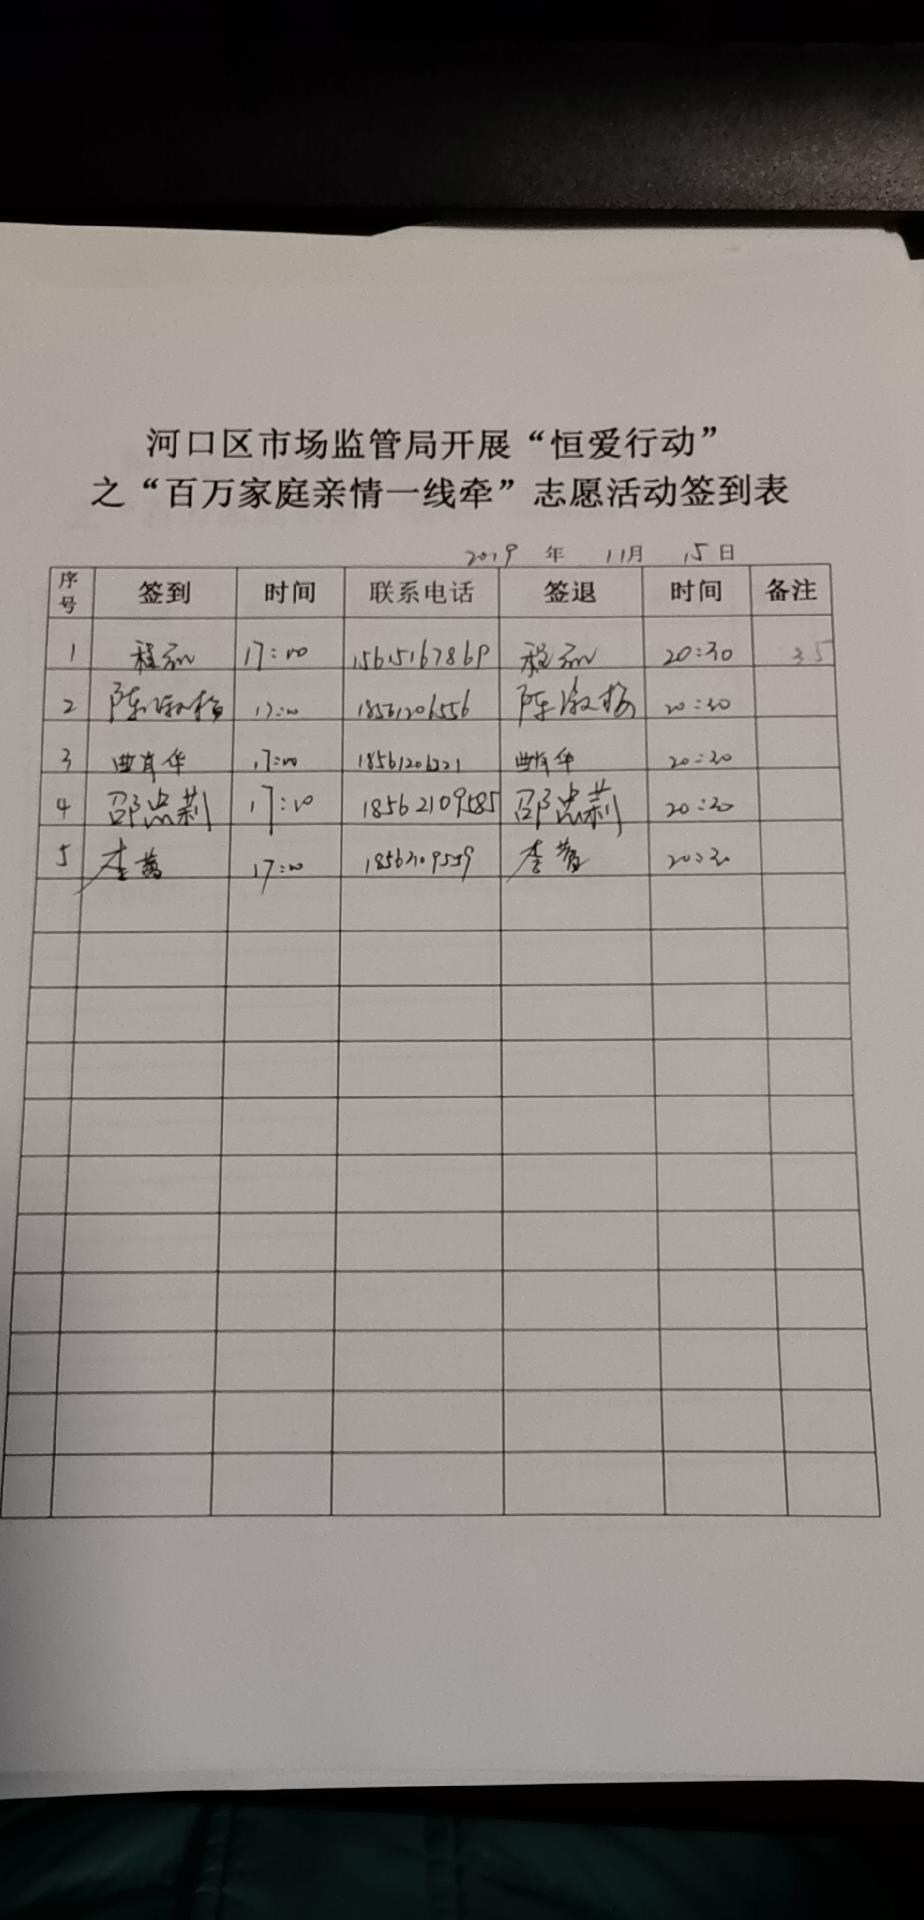 河口区市场监管局开展“恒爱行动”
之“百万家庭亲情一线牵”志愿活动签到表
2019 年 11月 15日
序号 签到 时间 联系电话 签退 时间 备注
1 17:00 15615167869 20:30 35
2 陈淑梅 17:00 18561206556 陈淑梅 20:30
3 曲肖华 17:00 曲肖华 20:30
4 邵忠莉 17:00 18562109585 邵忠莉 20:30
5 17:00 18562109559 20:30